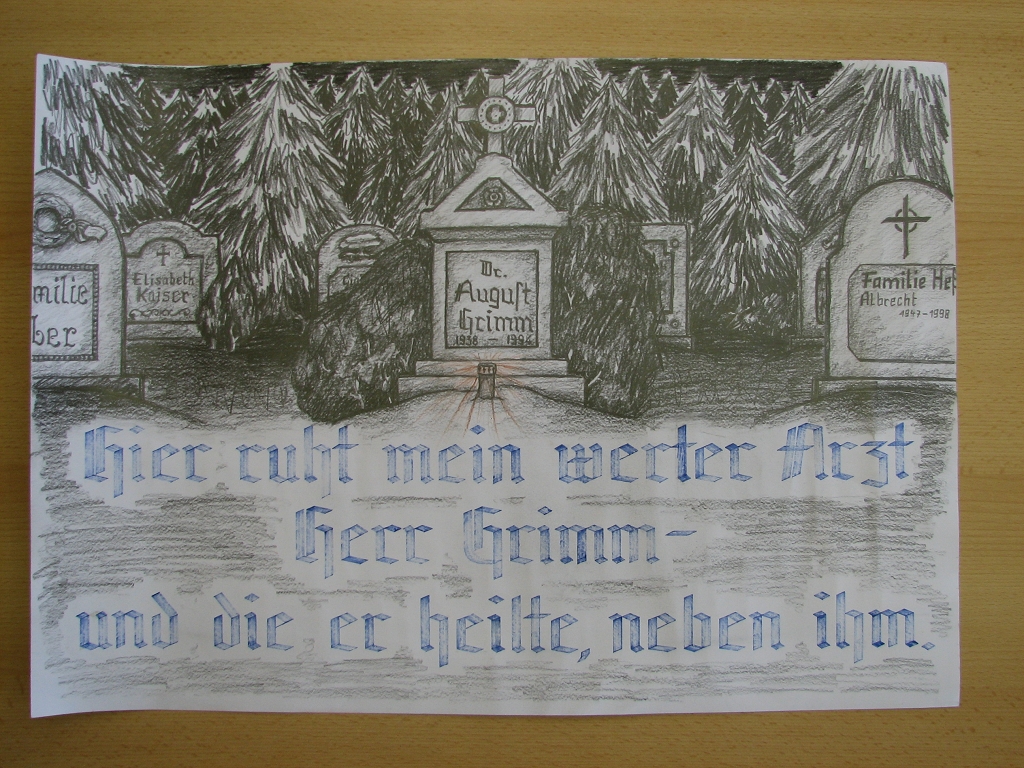 Elisabeth
Kaiser
Dr.
August
Grimm
milie
ber
Familie Heß
Albrecht
1947-1998
Hier ruht mein werter Arzt
Herr Grimm-
und die er heilte, neben ihm.